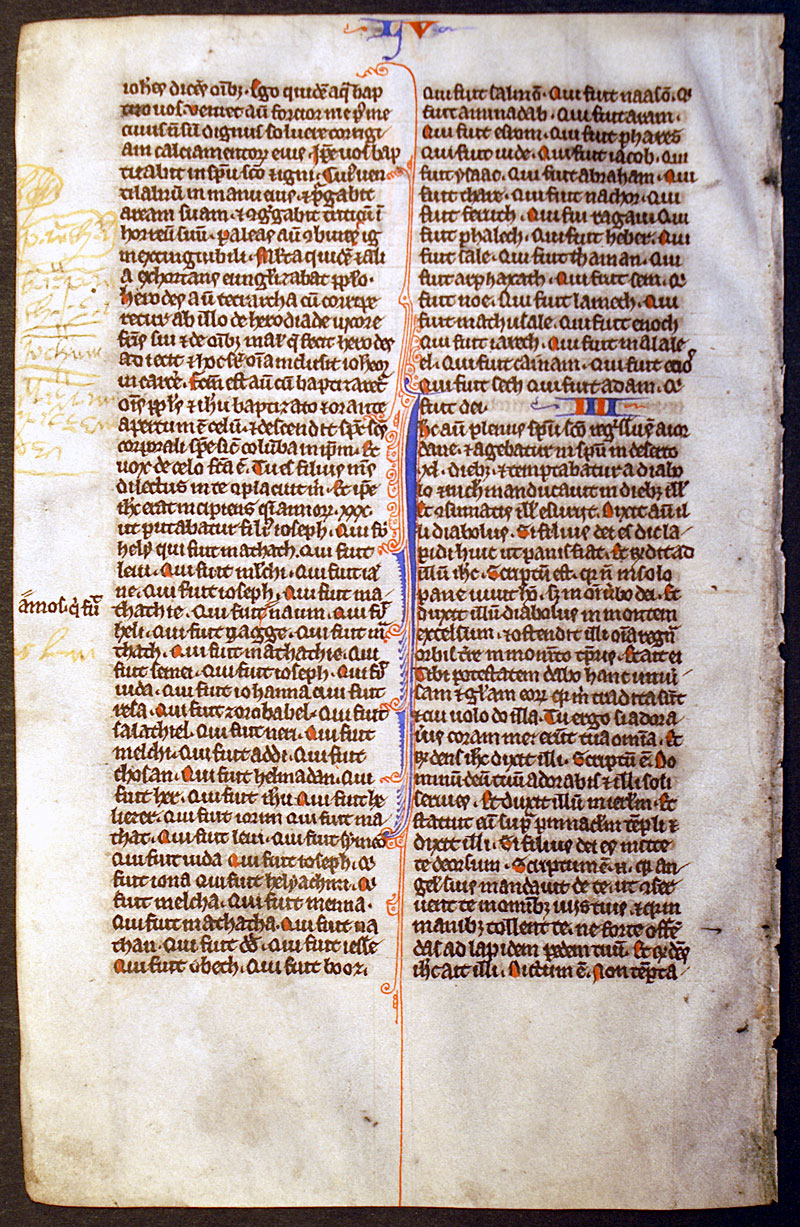 L V
iohes dicēs oībz. Ego quidē aq̄ bap
tizo uos. veniet aū forcior me p̄ me
cuius nō sū dignus soluere corrigi
am calciamentoꝝ eius. Ipse uos bap
tizabit in spū sco ⁊ igni. Cuiꝰ uen
tilabrū in manu eius. ⁊ p̄gabit
aream suam. ⁊ ꝯgregabit triticū ī
horreū suū. paleas aū ꝯburet ig
ni extinguibili. Multa quidē ⁊ ali
a exhortans euuḡlizabat ppl̄o.
herodes aū tetrarcha cū corripe
retur ab illo de herodiade uxore
fr̄is sui ⁊ de oībz mal̄ q̄ fecit herodes
adiecit ⁊ hoc sr̄ oīa inclusit iohem
in carcē. Fcm̄ est aū cū baptizaret
oīs ppl̄s ⁊ ihū baptizato ⁊ orante
apertum ē celū. ⁊ descendit sp̄s scs
corporali sp̄e sic̄ colūba in ip̄m. Et
uox de celo fca ē. Tu es filius ms̄
dilectus in te ꝯplacuit m̄. Et ip̄e
ihc erat incipiens q̄si annoꝝ .xxx.
ut putabatur filꝰ ioseph. Qui fō
hely qui fuit mathath. Qui fuit
leui. Qui fuit melchi. Qui fuit ia
ne. Qui fuit ioseph. Qui fuit ma
āmos. q̄ fuī
thathie. Qui fuit naum. Qui fō
heli. Qui fuit gagge. Qui fuit m̄
thath. Qui fuit mathathie. Qui
fuit semei. Qui fuit ioseph. Qui fō
iuda. Qui fuit iohanna cui fuit
resa. Qui fuit zorobabel. Qui fuit
salathiel. Qui fuit neri. Qui fuit
melchi. Qui fuit addi. Qui fuit
chosan. Qui fuit helmadan. Qui
fuit her. Qui fuit ihū Qui fuit he
liezer. Qui fuit iorim Qui fuit ma
that. Qui fuit leui. Qui fuit symeō
Qui fuit iuda Qui fuit ioseph. Q
fuit iona Qui fuit helyachim. Q
fuit melcha. Qui fuit menna.
Qui fuit mathatha. Qui fuit na
than. Qui fuit dd̄. Qui fuit iesse
Qui fuit obech. Qui fuit booz.
Qui fuit salmō. Qui fuit naasō. Q
fuit aminadab. Qui fuit aram.
Qui fuit esrom. Qui fuit phares
Qui fuit iude. Qui fuit iacob. Qui
fuit ysaac. Qui fuit abraham. Qui
fuit thare. Qui fuit nachor. Qui
fuit seruch. Qui fui ragau Qui
fuit phalech. Qui fuit heber. Qui
fuit sale. Qui fuit thainan. Qui
fuit arphaxath. Qui fuit sem. Q
fuit noe. Qui fuit lamech. Qui
fuit machusale. Qui fuit enoch
Qui fuit iarech. Qui fuit malale
el. Qui fuit cainam. Qui fuit enos
Qui fuit seth Qui fuit adam. Q
fuit dei. IIII
Ihc aū plenus spū sco regr̄ssus ē a ior
dane. ⁊ agebatur in spū in deserto
.xl. diebz ⁊ temptabatur a diabo
lo ⁊ nich̄ manducauit in diebz ill̄
Et ꝯsumatis ill̄ esuriit. Dixit aū il
li diabolus. Si filius dei es dic la
pidi huic ut panis fiat. Et rn̄dit ad
illū ihc. Scriptū est. qr̄ n̄ in solo
pane uiuit hō. s; in om̄i ubo dei. Et
duxit illū diabolus in montem
excelsum. ⁊ ostendit illi oīa regn̄
orbis tr̄e in momēto tp̄ris. ⁊ ait ei
Tibi potestatem dabo hanc uniu
sam ⁊ gl̄am eoꝝ qr̄ m̄ tradita sūt
⁊ cui uolo do illa. Tu ergo si adora
ūis coram me. erūt tua omīa. Et
rn̄dens ihc dixit illi. Scriptū ē. Do
minū deū tuū adorabis ⁊ illi soli
seruies. Et duxit illū in ierl̄m. Et
statuit eū sup̄ pinnaclm̄ tēpli ⁊
dixit illi. Si filius dei es mitte
te deorsum. Scriptum ē .n. qr̄ an
gel̄ suis mandauit de te. ut ꝯser
uent te in omībz uijs tuis. ⁊ qr̄ in
manibz tollent te. ne forte offē
das ad lapidem pedem tuū. Et rn̄dēs
ihc ait illi. Dictum ē. Non tēpta